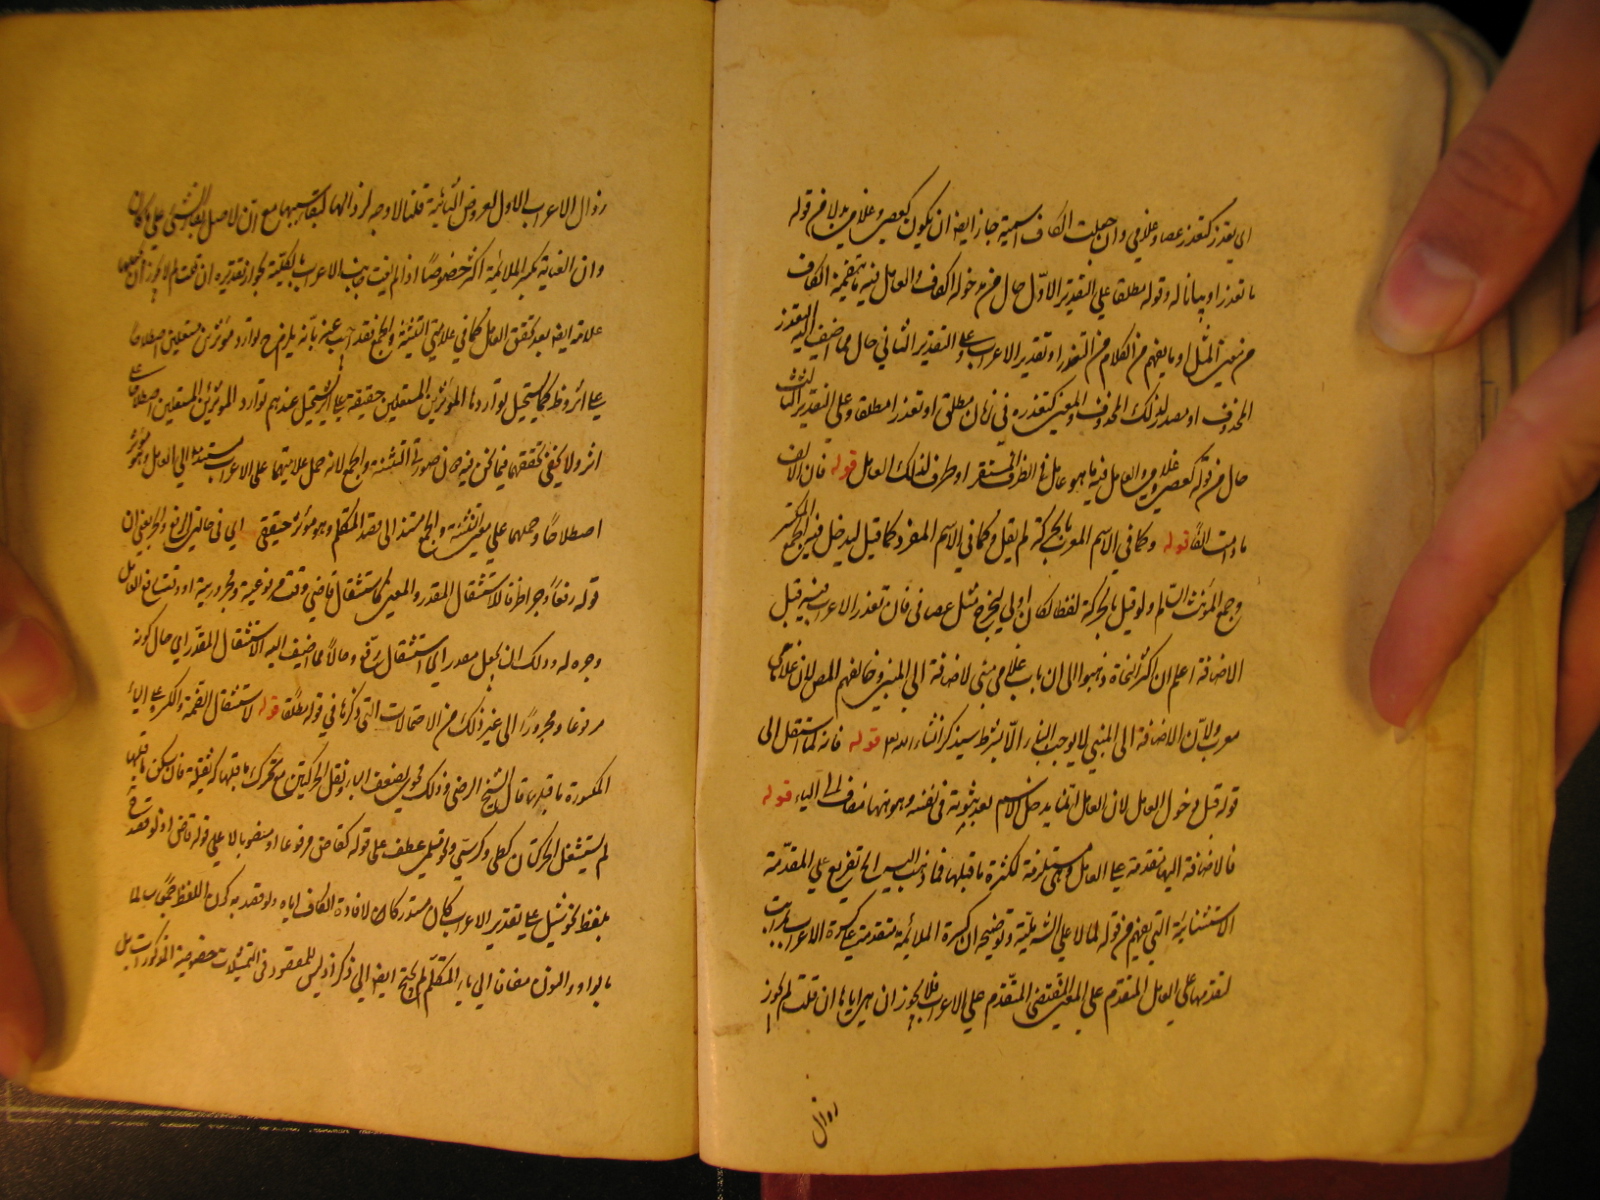 اى يتعذر كتعذر عصا وغلامى وان جعلت الكاف اسمية جاز ايضا ان يكون كعصى وغلامى بدلا من قوله
ما تعذر او بيانا له وقوله مطلقا على التقدير الاول حال من مدخول الكاف والعامل فيه ما يتضمنه الكاف
من معنى المثل او ما يفهم من الكلام من التعذر او تقدير الاعراب وعلى التقدير الثانى حال مما اضيف اليه التعذر
المحذوف او مصدر لذلك المحذوف والمعنى كتعذره فى زمان مطلق او تعذرا مطلقا وعلى التقدير الثالث
حال من قوله كعصى وغلامى والعامل فيه ما هو عامل فى الظرف المستقر او ظرف لذلك العامل قوله فان الالف
ما دامت الفا قوله وكما فى الاسم المعرب بالحركة لم يقل وكما فى الاسم المفرد كما قيل ليدخل فيه الجمع المكسر
وجمع المؤنث السالم ولو قيل بالحركة لفظا لكان اولى ليخرج مثل عصا فان تعذر الاعراب فيه قبل
الاضافة اعلم ان اكثر النحاة ذهبوا الى ان باب غلامى مبنى لاضافة الى المبنى وخالفهم المص لان غلامى
معرب ولان الاضافة الى المبنى لا يوجب البناء الا بشرط سيذكر انشاء الله تعالى قوله فانه لما اشتغل الى
قوله قبل دخول العامل لان العامل انما يدخل الاسم بعد ثبوته فى نفسه وهو ههنا مضاف الى الياء قوله
فالاضافة اليها متقدمة على العامل وهى مستلزمة لكسرة ما قبلها فما ذهب اليه الخ تفريع على المقدمة
الاستثنائية التى يفهم من قوله لما لا على الشرطية وتوضيحه ان كسرة الملائمة متقدمة على كسرة الاعراب
لتقدمها على العامل المتقدم على المعنى المقتضى المتقدم على الاعراب فلا يجوز ان هى اياها ان قلت لم لا يجوز
زوال
زوال الاعراب الاول لعروض الثانية قلنا لا وجه لزوالها لبقاء سببها مع ان الاصل بقاء الشىء على ما كان
وان العناية بكسر الملائمة اكثر خصوصا اذا لم يفت جانب الاعراب بالكلية لجواز تقديره ان قلت لم لا يجوز ان يجعلها
علامة ايضا بعد تحقق العامل كما فى علامتى التثنية والجمع فقد اجيب عنه بانه يلزم ح توارد مؤثرين مستقلين اصطلاحا
على اثر وظ كما يستحيل توارد المؤثرين المستقلين حقيقة على اثر يستحيل عندهم توارد المؤثرين المستقلين اصطلاحا على
اثر ولا يخفى تحققهما فيما نحن فيه دون صورتى التثنية والجمع لانه جعل علامتيهما على الاعراب مستند الى العامل وهو مؤثر
اصطلاحا وجعلهما على معنى التثنية والجمع مستند الى قصد المتكلم وهو مؤثر حقيقى اى فى حالتى الرفع والجر يعنى ان
قوله رفعا وجرا ظرف للاستثقال المقدر والمعنى كاستثقال قاض وقت مرفوعية ومجرورية او وقت رفع العامل
وجره له ولك ان تجعل مصدر اى استثقال رفع وحالا مما اضيف اليه الاستثقال المقدر اى حال كونه
مرفوعا ومجرورا الى غير ذلك من الاحتمالات التى ذكرناها فى قوله مطلقا قوله لاستثقال الضمة والكسرة على الياء
المكسورة ما قبلها قال الشيخ الرضى وذلك محسوس لضعف الياء وثقل الحركتين مع تحرك ما قبلها بحركة ثقيلة فان سكن ما قبلها
لم يستثقل الحركتان كظبى وكرسى ولو قيل عطف على قوله كقاض مرفوعا او منصوبا لا على قوله قاض اذ لو قصد
بلفظ نحو تمثيل على تقدير الاعراب كان مستدركا لافادة الكاف اياه ولو قصد به كون اللفظ جمعا سالما
بالواو والنون مضافا الى ياء المتكلم لم يحتج ايضا الى ذكره اذ ليس المقصود فى التمثيلات خصوصية المذكورات بل